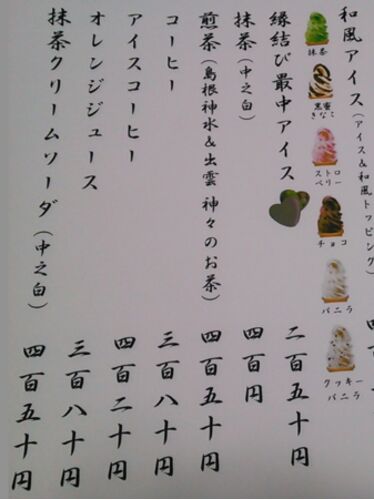 和風アイス(アイス&和風トッピング)
抹茶
黒蜜
きなこ
ストロ
ベリー
チョコ
バニラ
クッキー
バニラ
縁結び最中アイス 二百五十円
抹茶(中之白) 四百円
煎茶(島根神水&出雲 神々のお茶) 四百五十円
コーヒー 三百八十円
アイスコーヒー 四百二十円
オレンジジュース 三百八十円
抹茶クリームソーダ(中之白) 四百五十円